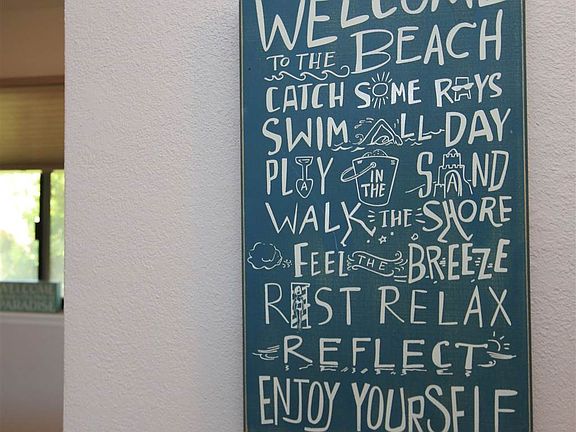 WELCOME
TO THE BEACH
CATCH SOME RAYS
SWIM ALL DAY
PLAY IN THE SAND
WALK THE SHORE
FEEL THE BREEZE
REST RELAX
REFLECT
ENJOY YOURSELF
PARADISE